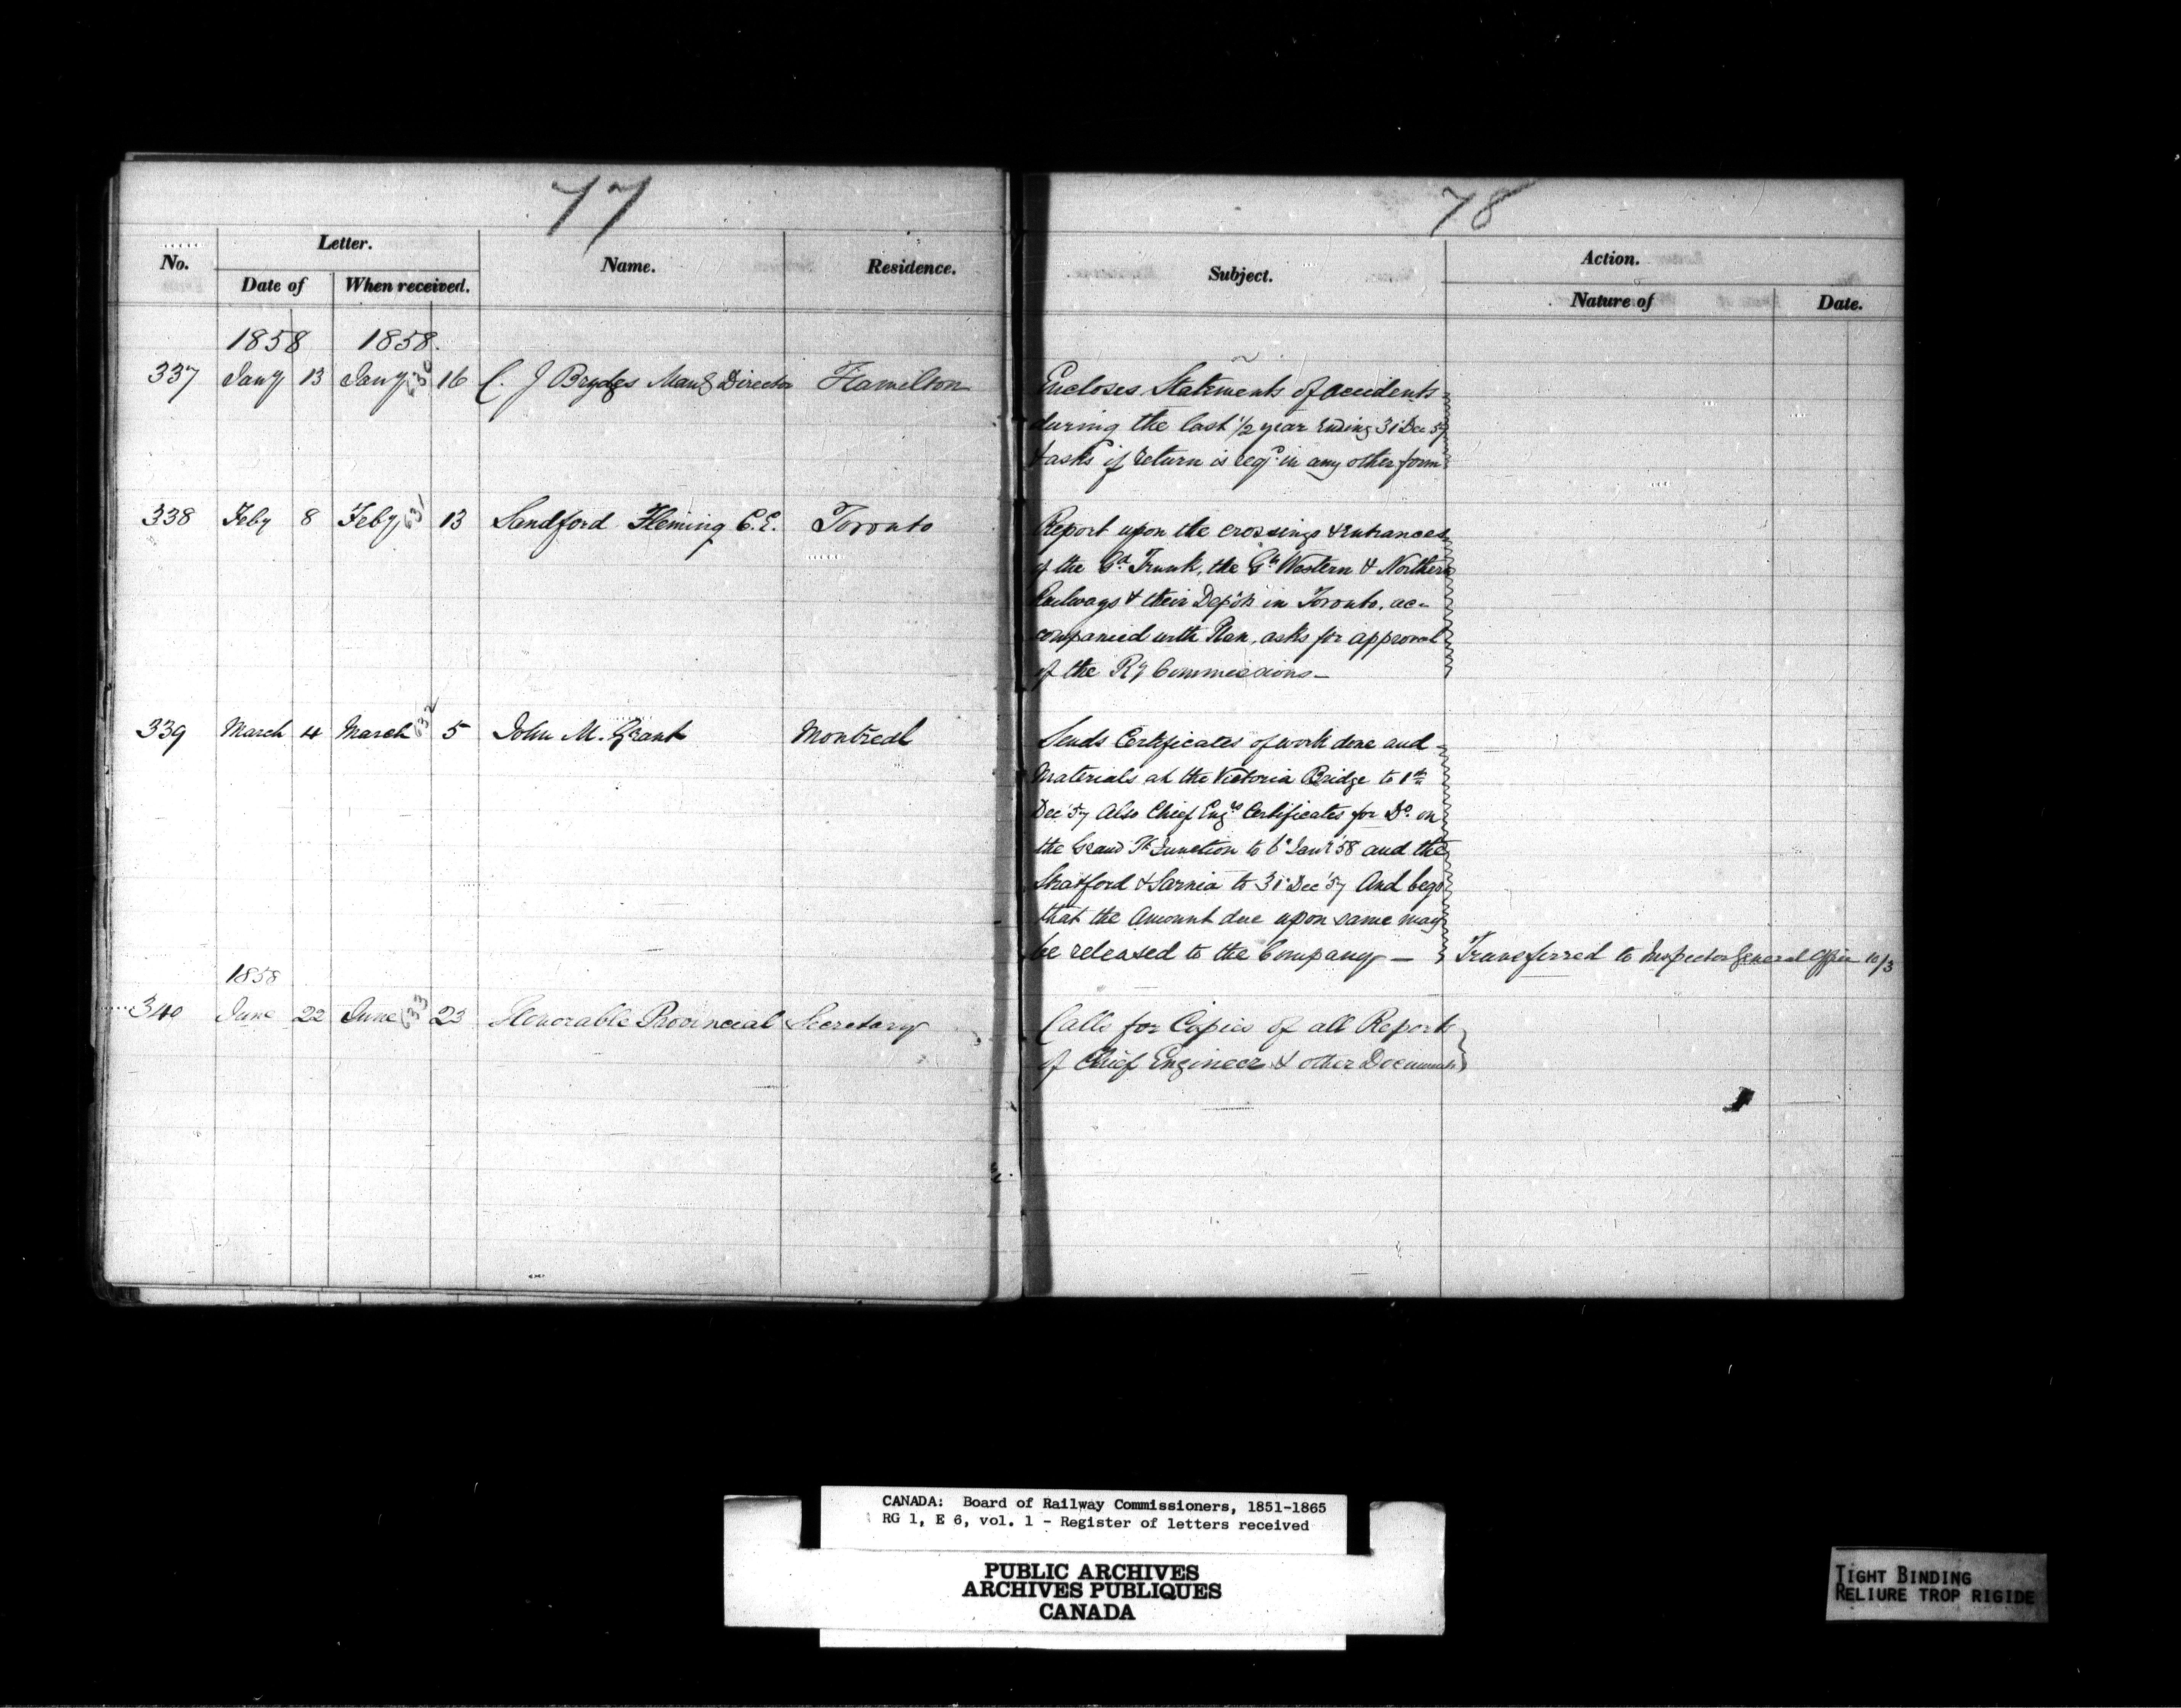 77
78
No.
Letter.
Date of
When received.
Name.
Residence.
Subject.
Action.
Nature of
Date.
1858 1858.
337 Jany 13 Jany 630 16 C. J Brydges Mang Director Hamilton
Encloses Statements of accidents
during the last 1/2 year Ending 31 Dec 57
& asks if return is reqd in any other form
338 Feby 8 Feby 631 13 Sandford Fleming C.E. Toronto
Report upon the crossings & Entrances
of the Gd Trunk, the Gt Western & Northern
Railways & their Depôts in Toronto, ac-
companied with Plan, asks for approval
of the Ry Commissions—
339 March 4 March 632 5 John M. Grant Montreal
Sends Certificates of work done and
Materials at the Victoria Bridge to 1st
Dec '57 Also Chief Engrs Certificates for Do. on
the Grand Tk Junction to 6 Jany '58 and the
Stratford & Sarnia to 31 Dec '57 And begs
that the Amount due upon same may
be released to the Company —
Transferred to Inspector General Office 10/3
1858
340 June 22 June 633 23 Honorable Provincial Secretary
Calls for Copies of all Reports
of Chief Engineer & other Documents
CANADA: Board of Railway Commissioners, 1851-1865
RG 1, E 6, vol. 1 - Register of letters received
PUBLIC ARCHIVES
ARCHIVES PUBLIQUES
CANADA
TIGHT BINDING
RELIURE TROP RIGIDE